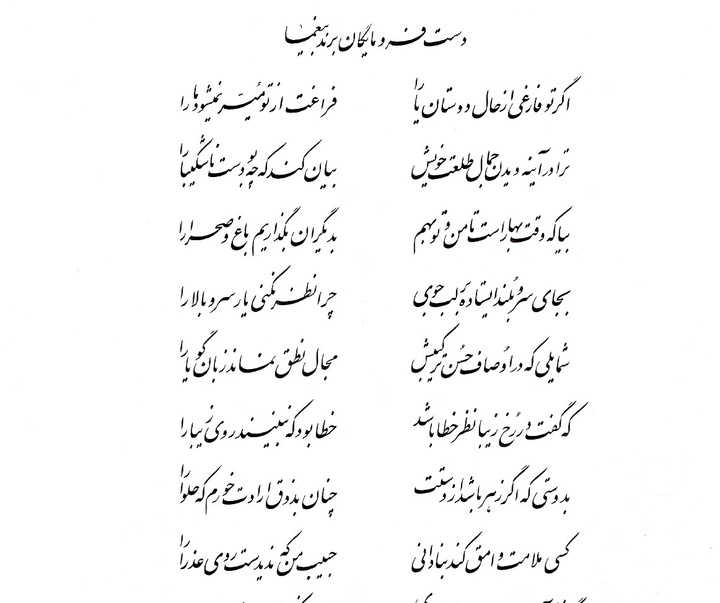 دست فرومایگان برند بیغما
اگر تو فارغی از حال دوستان یارا فراغت از تو میسّر نمیشود ما را
ترا در آینه دیدن جمال طلعت خویش بیان کند که چه بودست ناشکیبا را
بیا که وقت بهار است تا من و تو بهم بدیگران بگذاریم باغ و صحرا را
بجای سرو بلند ایستاده بر لب جوی چرا نظر نکنی یار سرو بالا را
شمایلی که در اوصاف حُسن ترکیبش مجال نطق نماند زبان گویا را
که گفت در رُخ زیبا نظر خطا باشد خطا بود که نبینند روی زیبا را
بدوستی که اگر زهر باشد از دستت چنان بذوق ارادت خورم که حلوا را
کسی ملامت وامق کند بنادانی حبیب من که ندیدست روی عذرا را